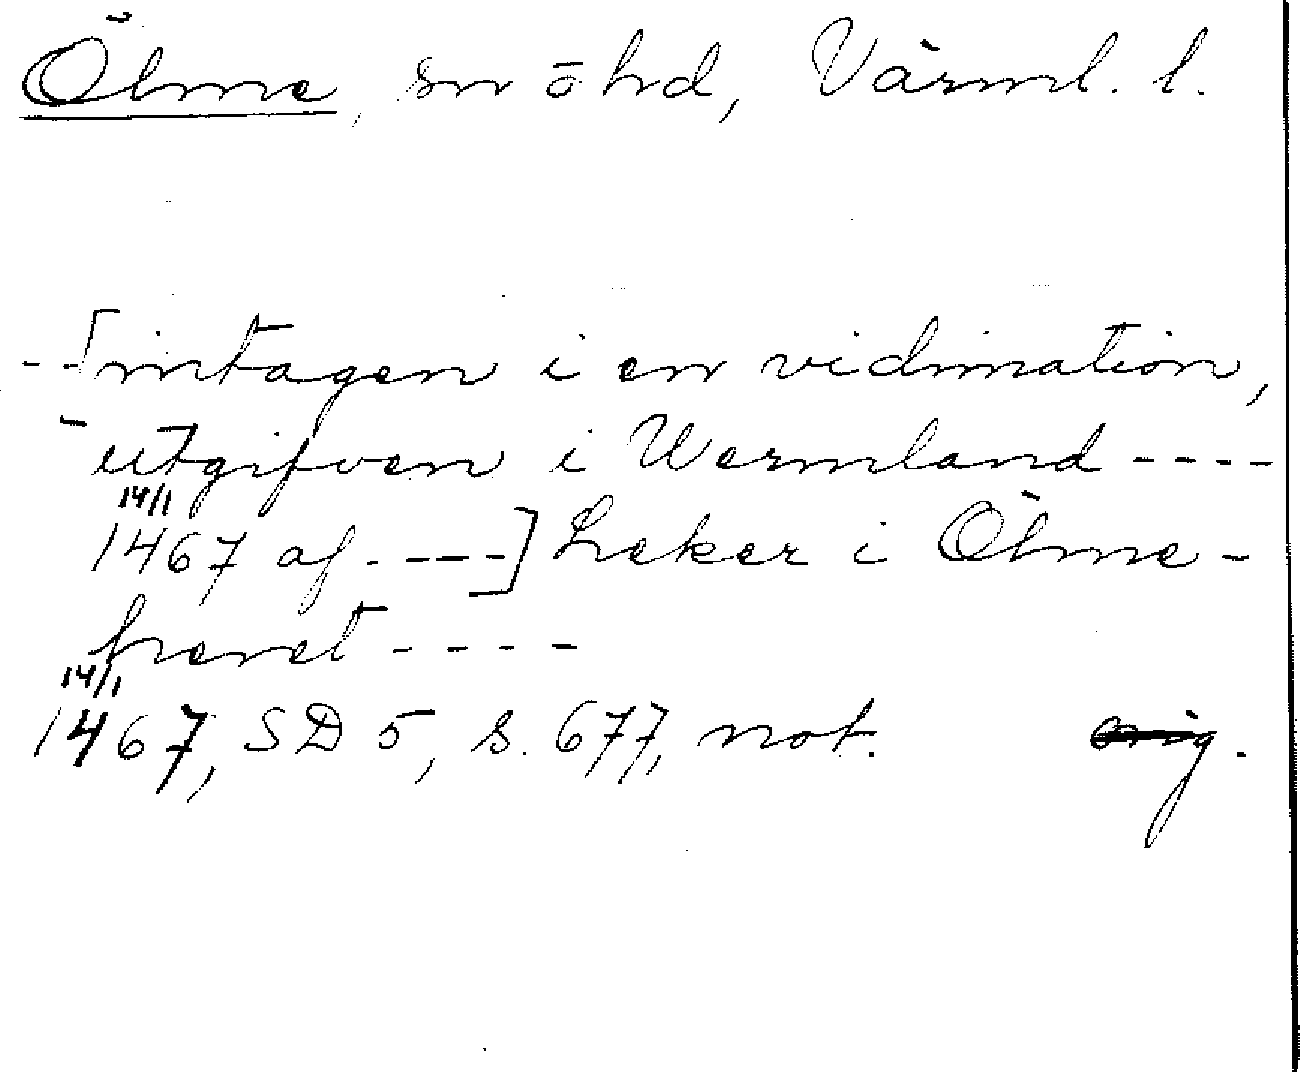 Ölme, sn ö hd, Värml. l.
--[intagen i en vidimation,
utgifven i Wermland ----
14/1
1467 af ----] Leker i Ölme-
heret ----
14/1
1467, SD 5, s. 677, not. orig.